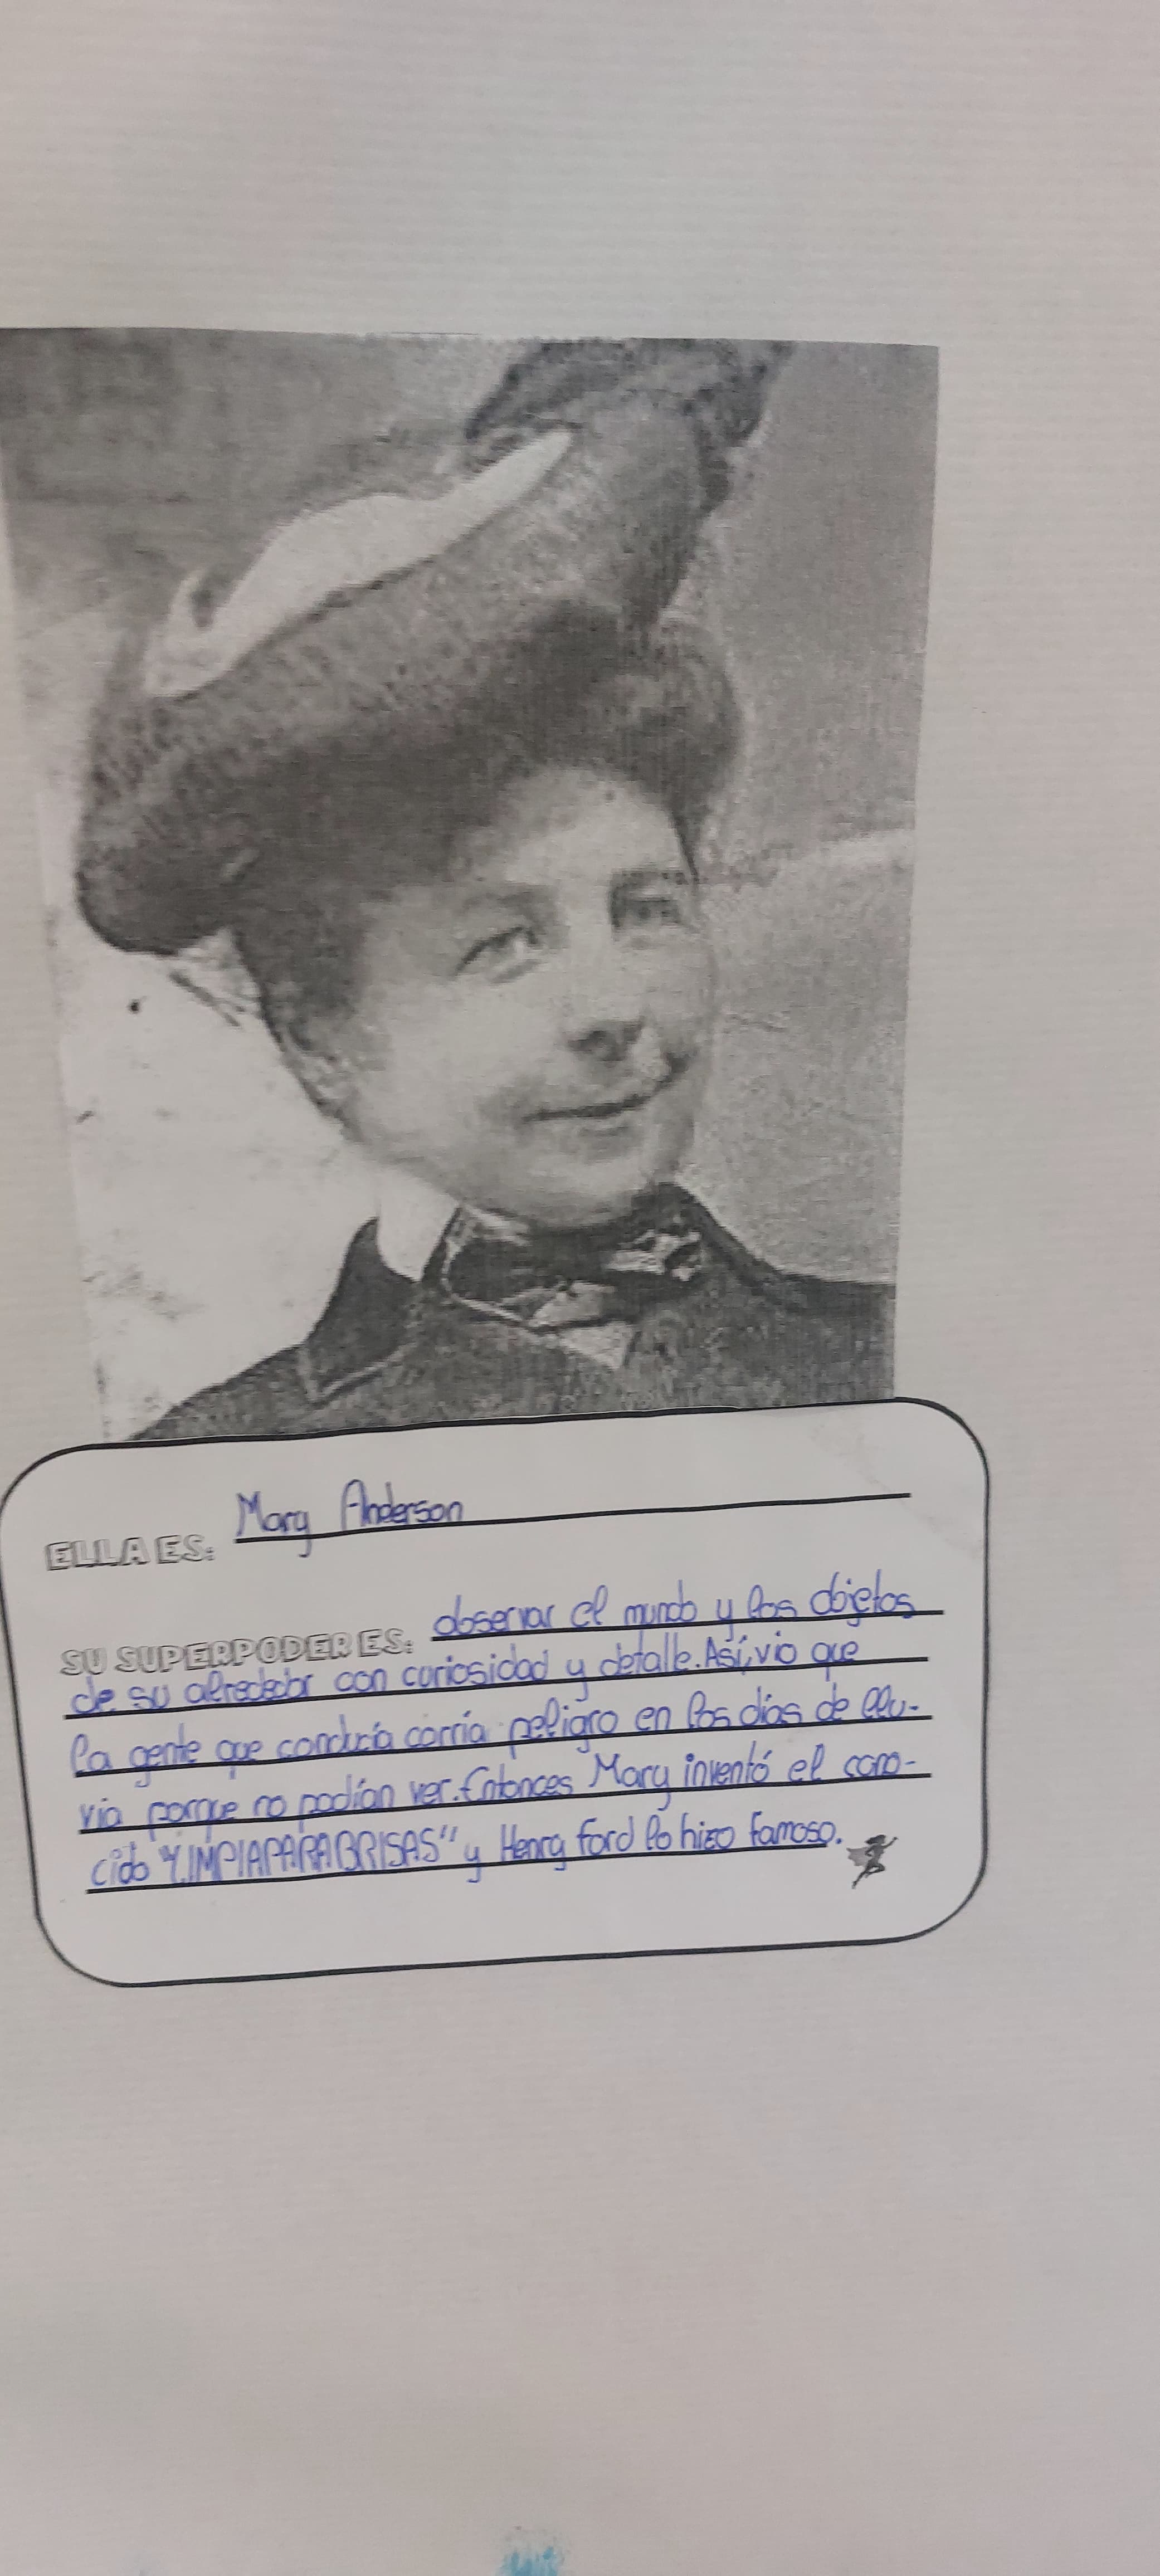 ELLA ES: Mary Anderson
SU SUPERPODER ES: observar el mundo y los objetos
de su alrededor con curiosidad y detalle. Así, vio que
la gente que conducía corría peligro en los días de llu-
via porque no podían ver. Entonces Mary inventó el cono-
cido "LIMPIAPARABRISAS" y Henry Ford lo hizo famoso.